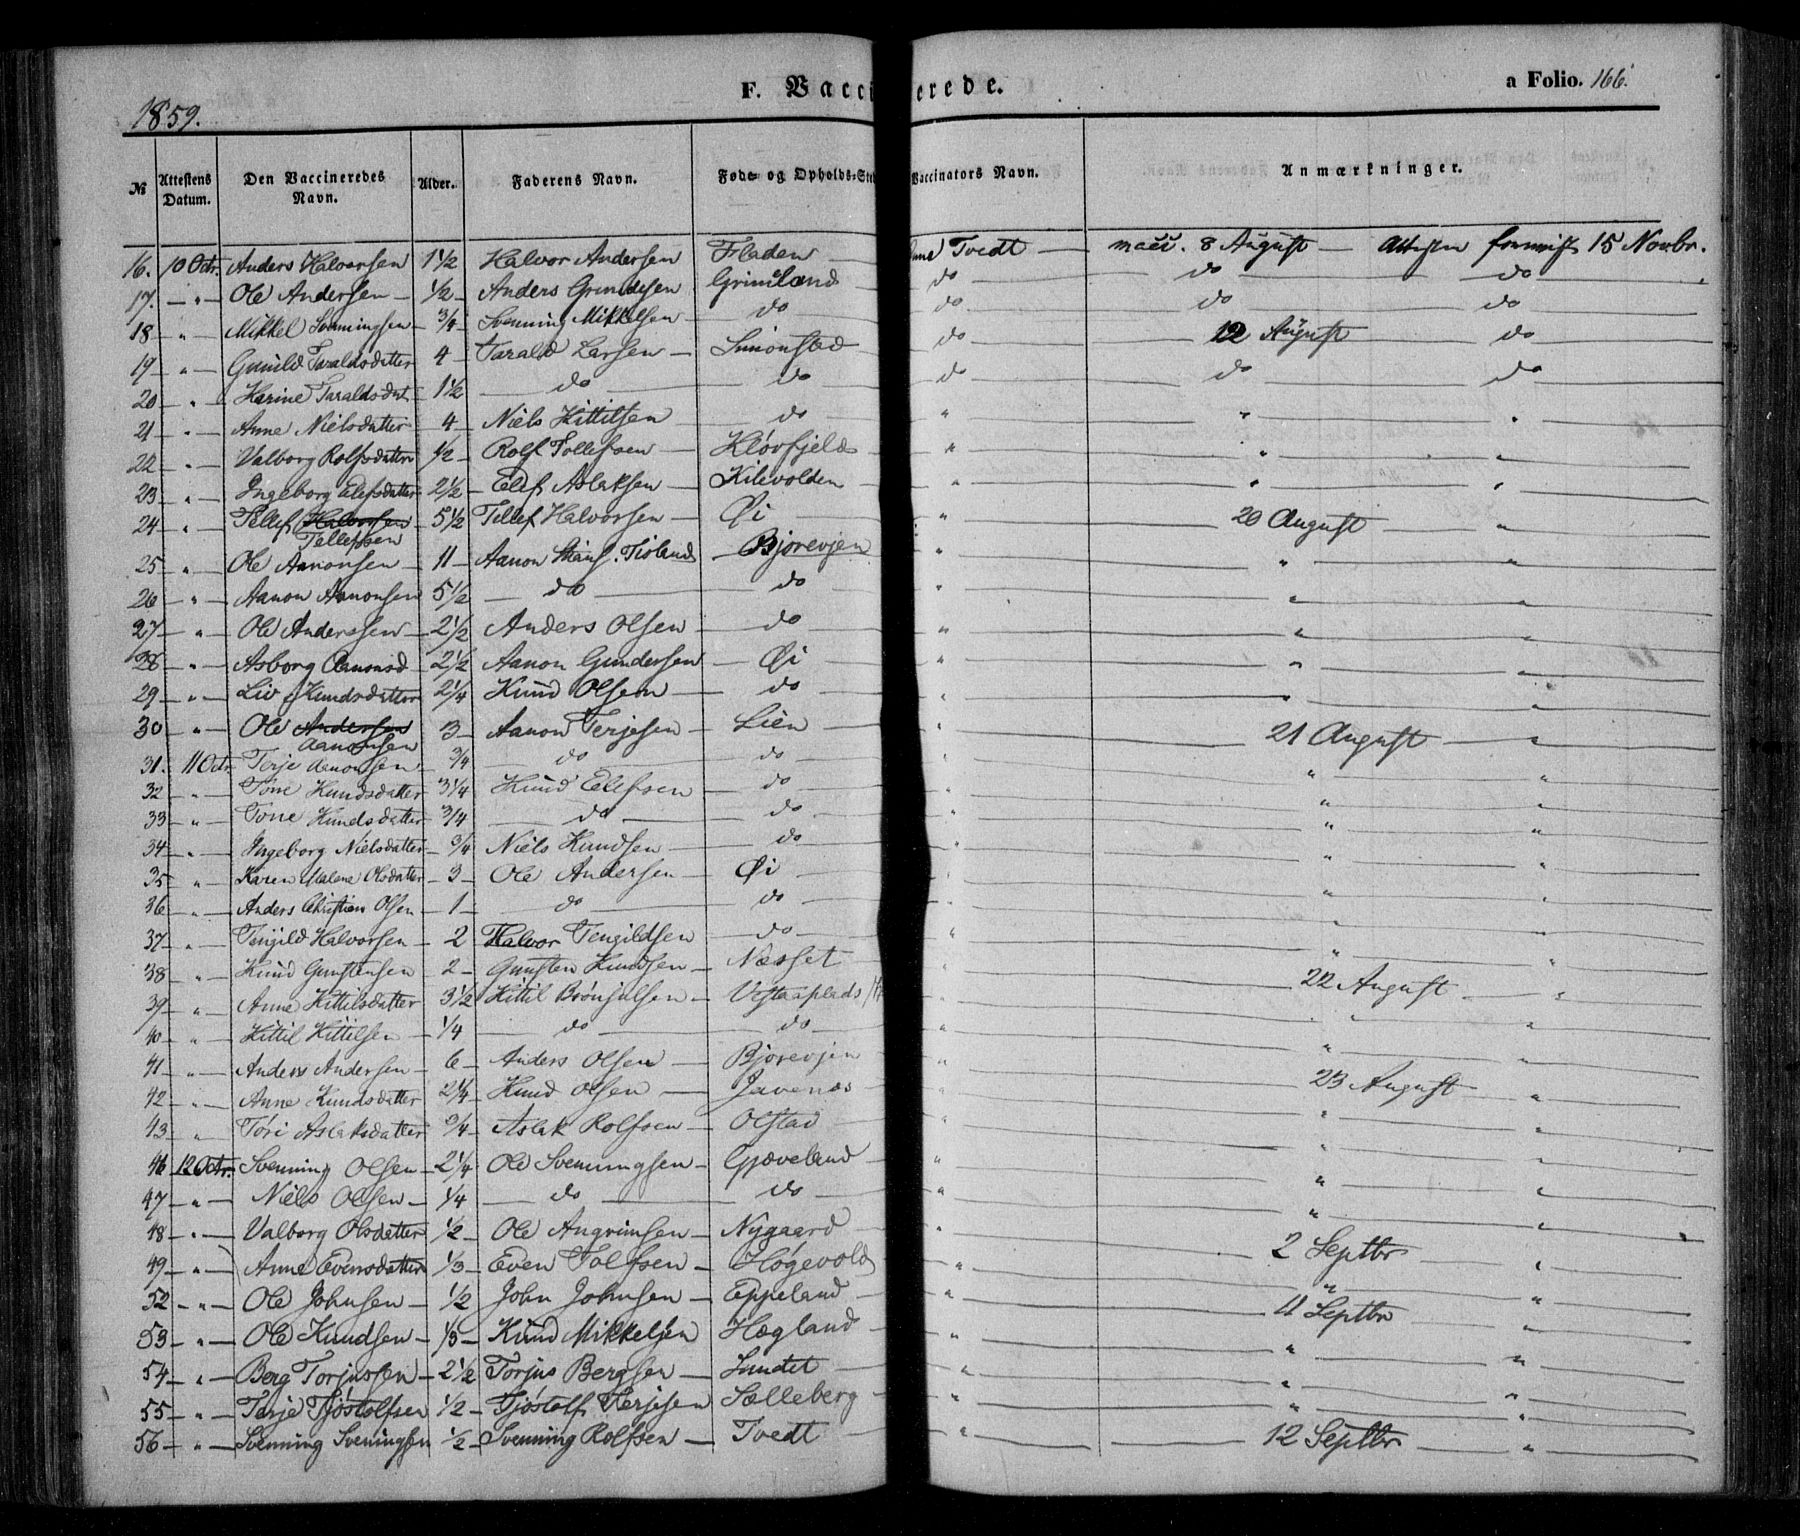 1859.
F. Vaccinerede.
a Folio. 166.
№ Attestens Datum. Den Vaccineredes Navn. Alder. Faderens Navn. Føde- og Opholds-Sted Vaccinators Navn. Anmærkninger.
16. 10 Octr. Anders Halvorsen 1 1/2 Halvor Andersen Fladen Tvedt vacc. 8 August Attesten 15 Novbr.
17. " Ole Andersen 1/2 Anders Gundesen Grimsland do do do
18 " Mikkel Svenningsen 3/4 Svenning Mikkelsen do do do do
19 " Gunild Taraldsdatter 4 Tarald Larsen Simonstad do 12 August do
20 " Karine Taraldsdat 1 1/2 do do do do do
21 " Anne Nielsdatter 4 Niels Kittilsen do " " "
22 " Valborg Rolfsdatter 1/2 Rolf Tollefsen Kløvfjeld " " "
23 " Ingeborg Elefsdatter 2 1/2 Elef Aslaksen Kilevolden " " "
24 " Tellef Halvorsen Tellefsen 5 1/2 Tellef Halvorsen Øi " 20 August "
25 " Ole Aanonsen 11 Aanon Bjorevjen " " "
26 " Aanon Aanonsen 5 1/2 do do " "
27 " Ole Anderssen 2 1/2 Anders Olsen do " " "
28 " Asborg Aanonsd 2 1/2 Aanon Gundersen Øi " " "
29 " Liv Knudsdatter 2 1/4 Knud Olsen do " " "
30 " Ole Andersen Aanonsen 3 Aanon Terjesen Lien " 21 August "
31. 11 Octr. Terje Aanonsen 3/4 do do " " "
32 " Tone Knudsdatter 3 1/4 Knud Elefsen do " " "
33 " Tone Knudsdatter 3/4 do do " " "
34 " Ingeborg Nielsdatter 3/4 Niels Knudsen do " " "
35 " Karen Malene Olsdatter 3 Ole Andersen Øi " " "
36 " Anders Christian Olsen 1 do do " "
37 " Tengild Halvorsen 2 Halvor Tengildsen do " " "
38 " Knud Gunstensen 2 Gunsten Knudsen Næsset " 22 August "
39 " Anne Kittilsdatter 3 1/2 Kittil Brønjulsen " " "
40 " Kittil Kittilsen 1/4 do do " " "
41 " Anders Andersen 6 Anders Olsen Bjorevjen " 23 August
42 " Anne Knudsdatter 2 1/4 Knud Olsen Javenæs " " "
43 " Tøri Aslaksdatter 3/4 Aslak Rolfsen Olstad " "
46 12 Octr. Svenning Olsen 2 1/4 Ole Svenningsen Gjæveland " " "
47 " Niels Olsen 1/4 do do " " "
48 " Valborg Olsdatter 1/2 Ole Angrimsen Nygaard " 2 Septbr "
49 " Anne Evensdatter 1/3 Even Tolfsen Høgevold " " "
52 " Ole Johnsen 1/2 John Johnsen Eppeland " 11 Septbr "
53 " Ole Knudsen 1/3 Knud Mikkelsen Hægland " " "
54 " Berg Torjussen 2 1/2 Torjus Bergsen Lundet " "
55 " Terje Tjøstolfsen 1/2 Tjøstolf Terjesen Sælleberg " " "
56 " Svenning Svenningsen 1/2 Svenning Rolfsen Tvedt " 12 Septbr "